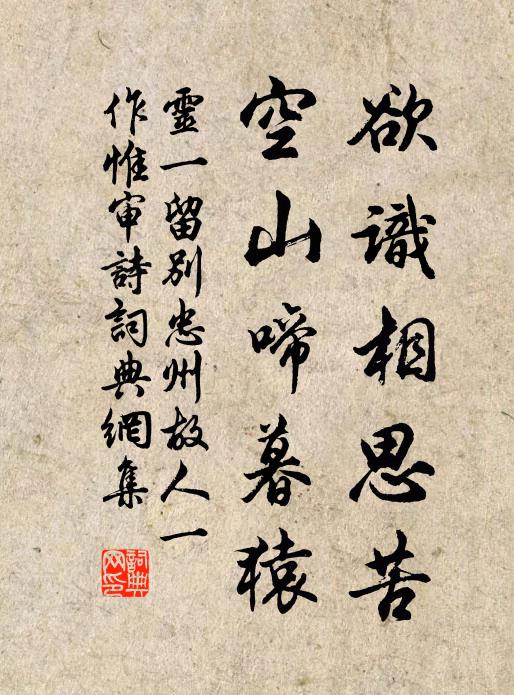 欲識相思苦
空山啼暮猿
靈一留別忠州故人一
作惟审詩詞典網集
詞典
网印